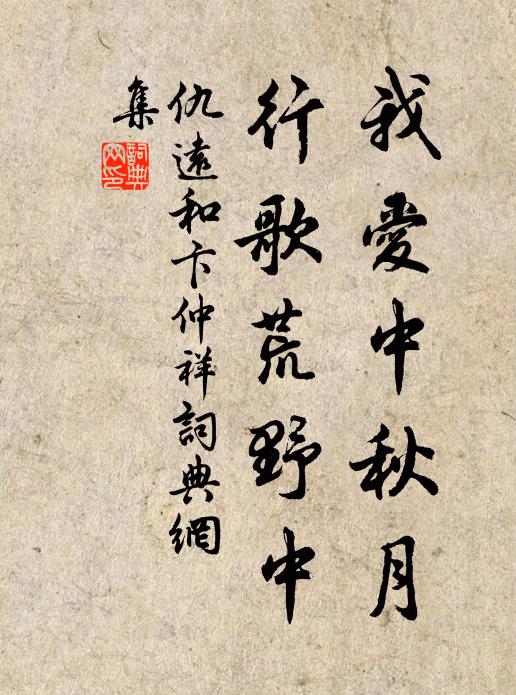 我愛中秋月
行歌荒野中
仇遠和卞仲祥詞典網
集
詞典網印